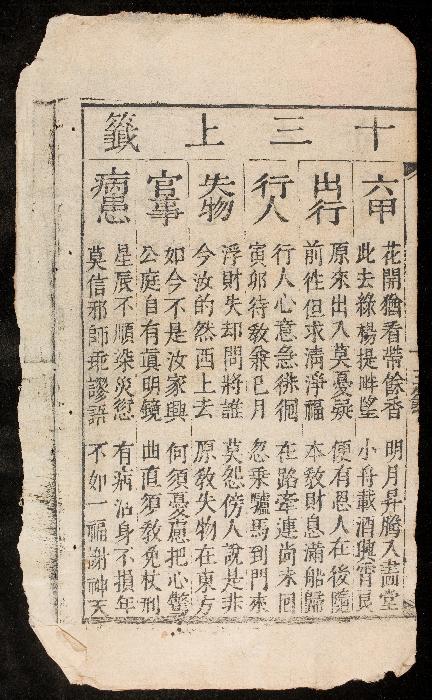 十三上籤
六甲
花開猶看帶餘香　明月昇騰入畫堂
此去綠楊提畔望　小舟載酒興宵長
出行
原來出入莫憂疑　便有恩人在後隨
前徃但求清淨福　本教財息滿船歸
行人
行人心意急徘徊　在路牽連尚未回
寅卯待教兼巳月　忽乘驢馬到門來
失物
浮財失却問將誰　莫怨傍人說是非
今汝的然西上去　原教失物在東方
官事
如今不是汝家興　何須憂慮把心驚
公庭自有眞明鏡　曲直須教免杖刑
病患
星辰不順染災愆　有病沾身不損年
莫信邪師乖謬語　不如一福謝神天